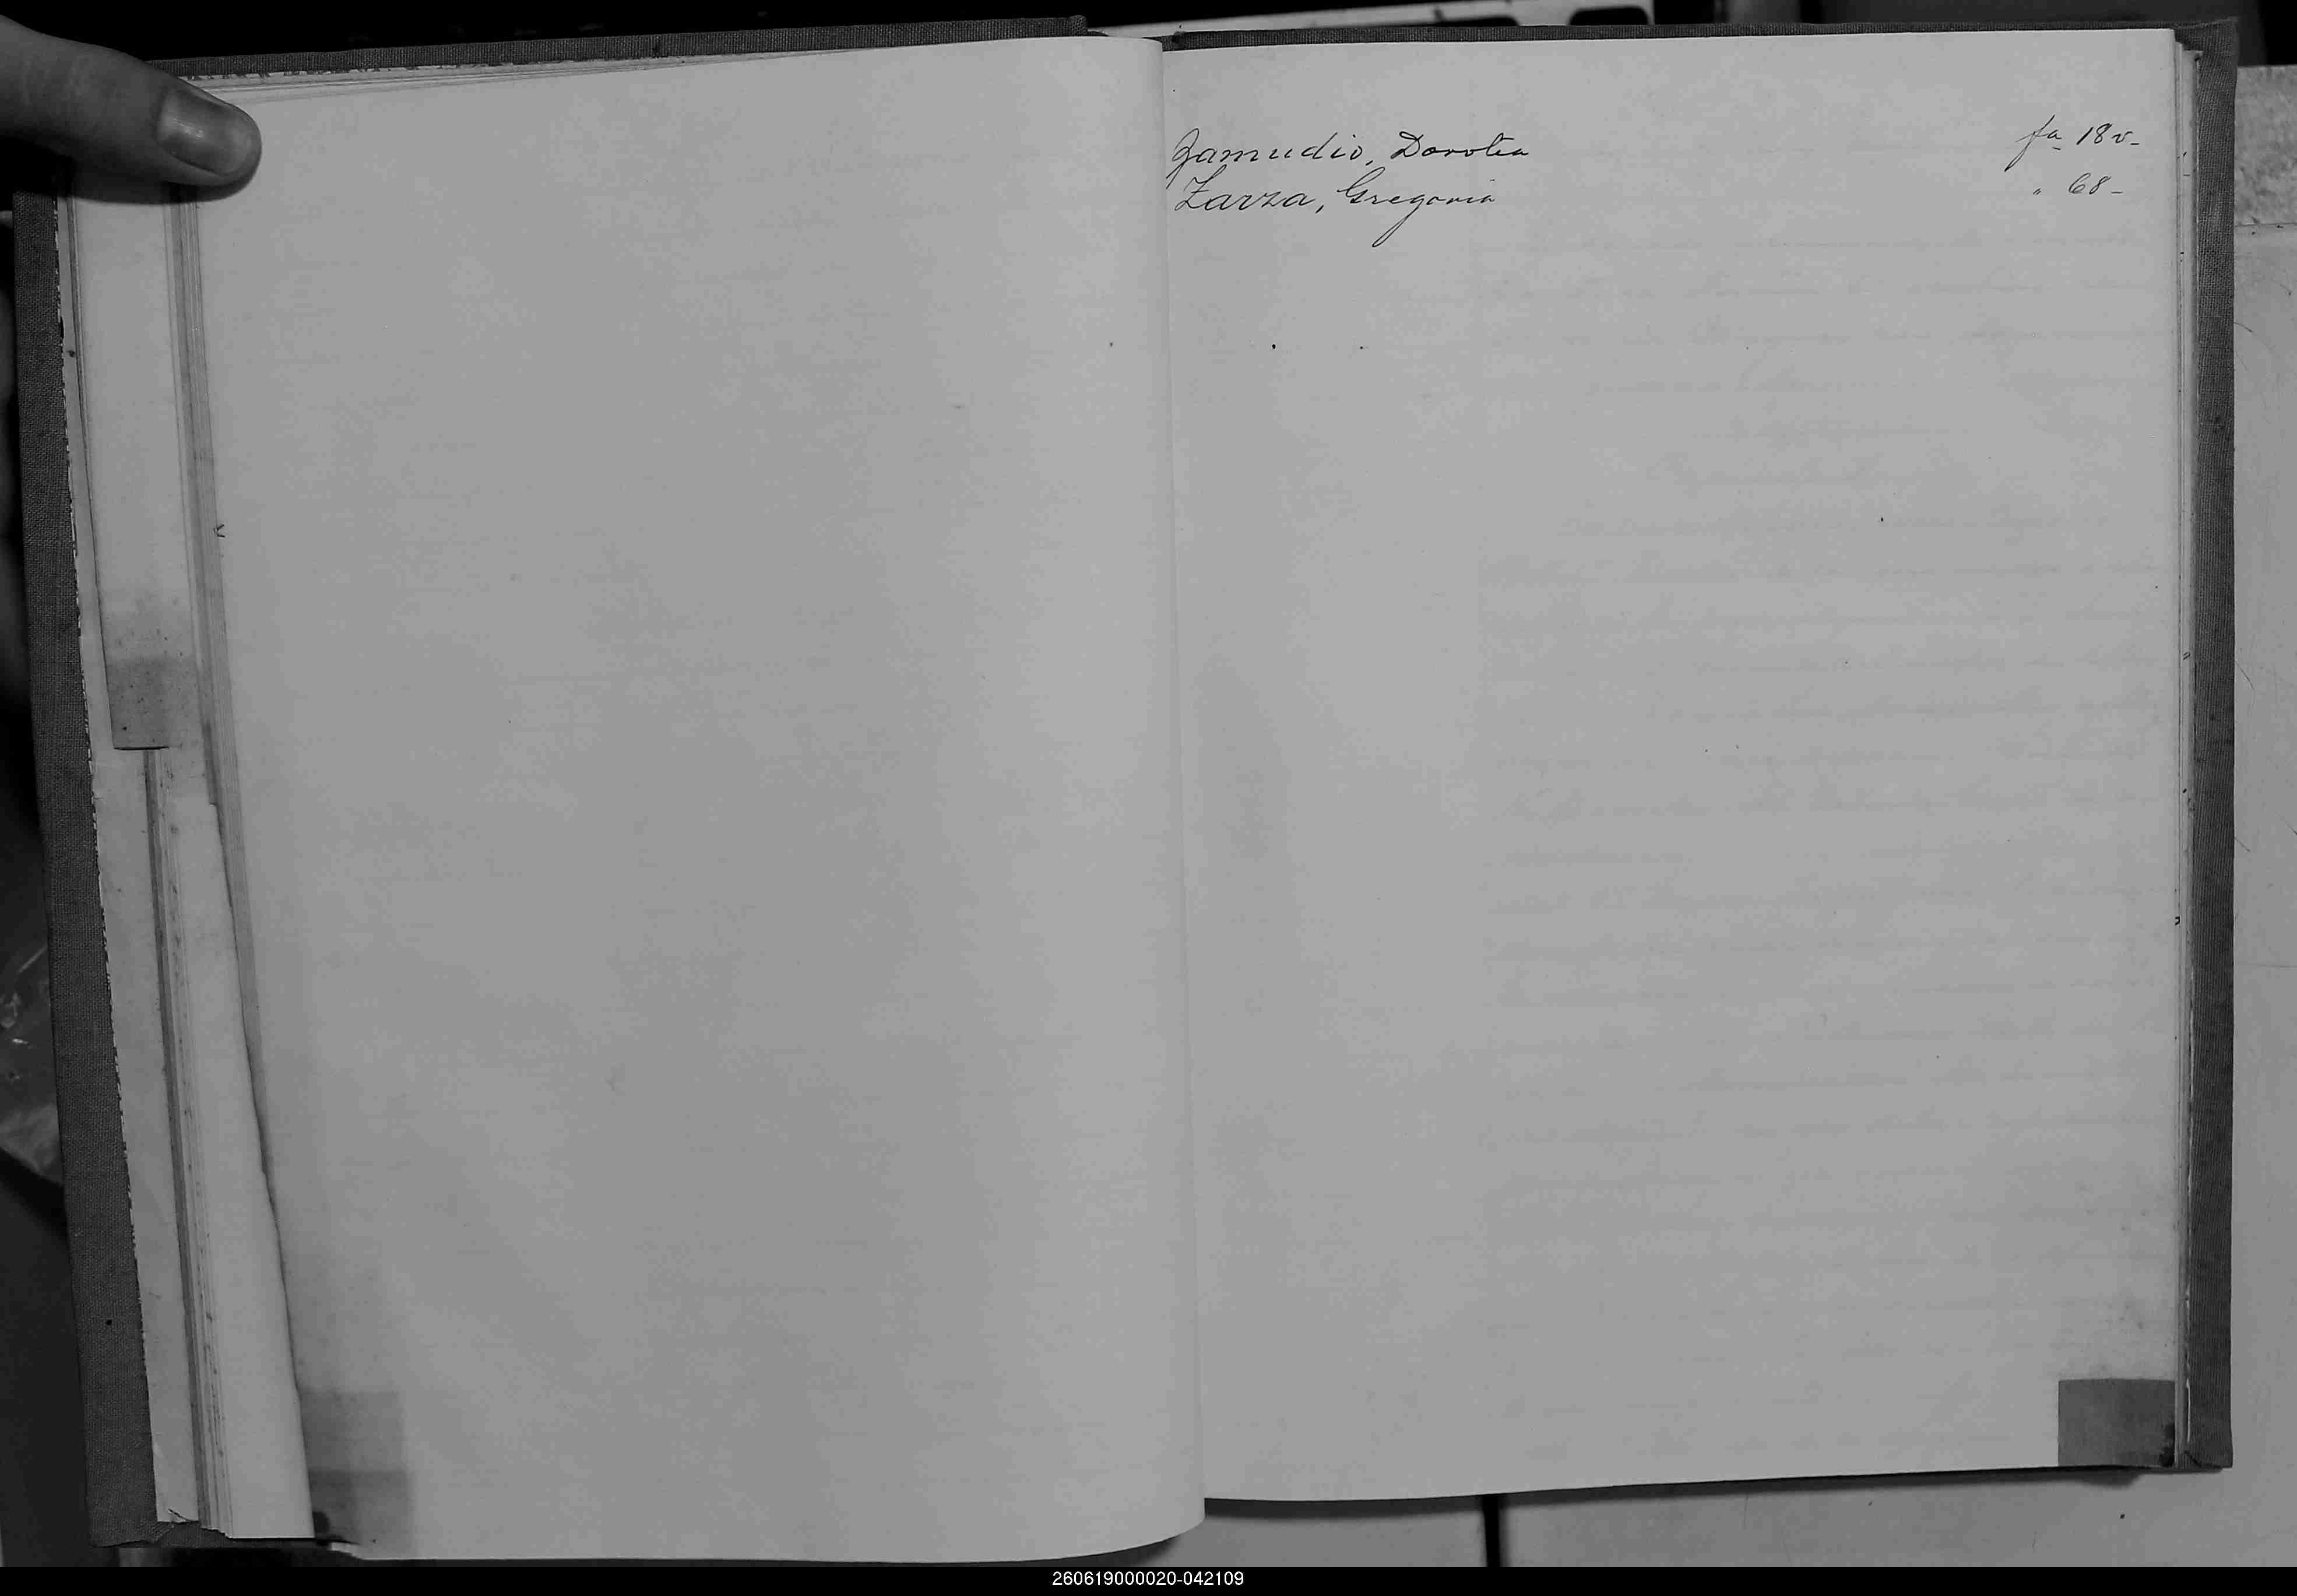 Zamudio, Dorotea fa 18v-
Zarza, Gregoria " 68-
260619000020-042109